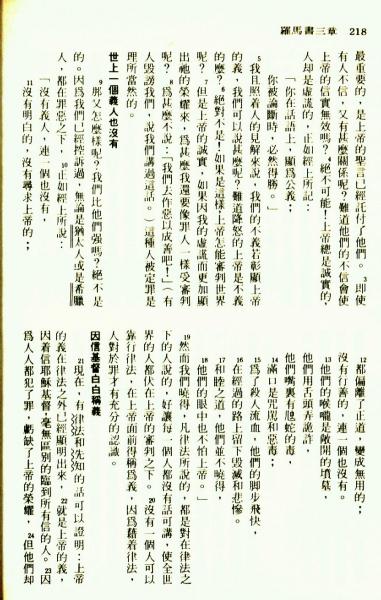 羅馬書三章 218
最重要的,是上帝的聖言已經託付了他們。 3即使
有人不信,又有甚麼關係呢?難道他們的不信會使
上帝的信實無效嗎? 4絕不可能!上帝總是誠實的,
人却是虛謊的,正如經上所記:
「你在話語上,顯為公義;
你被論斷時,必然得勝。」
5我且照着人的見解來說,我們的不義若彰顯上帝
的義,我們可以說甚麼呢?難道降怒的上帝是不義
的麼? 6絕對不是!如果是這樣,上帝怎能審判世界
呢? 7但是上帝的誠實,如果因我的虛謊而更加顯
出祂的榮耀來,為甚麼我還要像罪人一樣受審判
呢? 8為甚麼不說:「我們去作惡以成善吧!」(有
人毀謗我們,說我們講過這話。)這種人被定罪是
理所當然的。
世上一個義人也沒有
9那又怎麼樣呢?我們比他們強嗎?絕不是
的。因為我們已經控訴過,無論是猶太人或是希臘
人,都在罪惡之下, 10正如經上所說:
「沒有義人,連一個也沒有,
11沒有明白的,沒有尋求上帝的;
12都偏離了正道,變成無用的;
沒有行善的,連一個也沒有。
13他們的喉嚨是敞開的墳墓,
他們用舌頭弄詭詐,
他們嘴裏有虺蛇的毒,
14滿口是咒罵和惡毒;
15為了殺人流血,他們的脚步飛快,
16在經過的路上留下毀滅和悲慘。
17和睦之道,他們並不曉得,
18他們的眼中也不怕上帝。」
19然而我們曉得,凡律法所說的,都是對在律法之
下的人說的,好讓每一個人都沒有話可講,使全世
界的人都伏在上帝的審判之下。 20沒有一個人可以
靠行律法,在上帝面前得稱為義,因為藉着律法,
人對於罪才有充分的認識。
因信基督白白稱義
21現在,有律法和先知的話可以證明:上帝
的義在律法之外已經顯明出來, 22就是上帝的義,
因着信耶穌基督,毫無區別的臨到所有信的人。 23因
為人人都犯了罪,虧缺了上帝的榮耀, 24但他們却